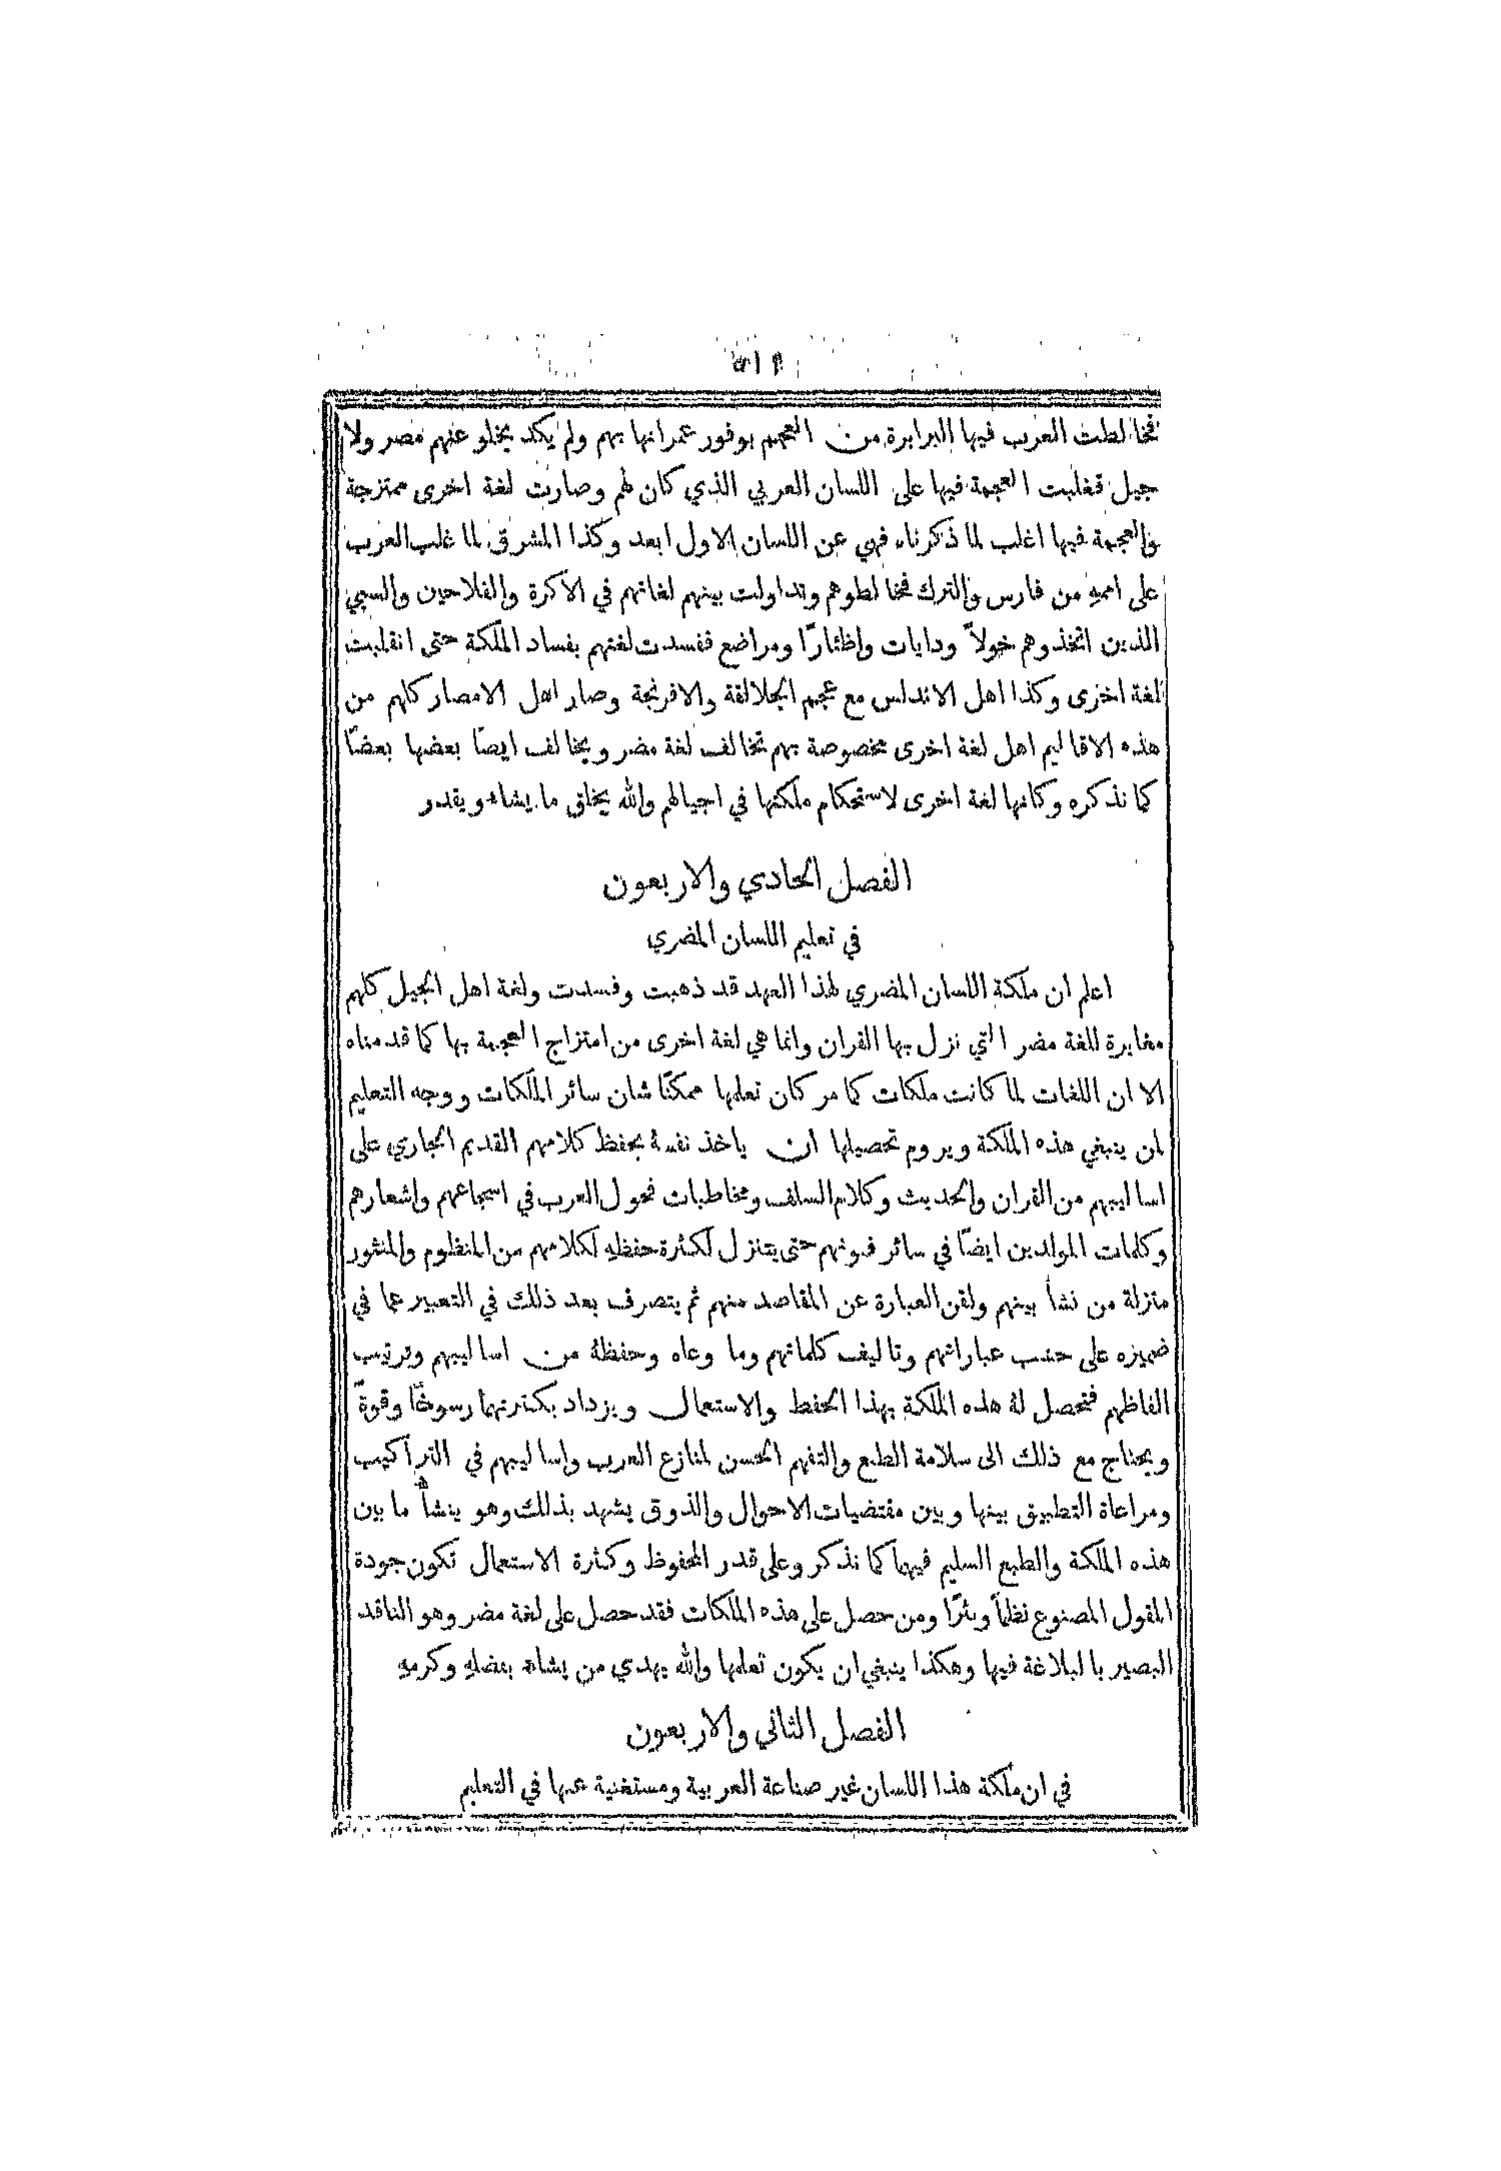 فخالطت العرب فيها البرابرة من العجم بوفور عمرانها بهم ولم يكد يخلو عنهم مصر ولا
جيل فغلبت العجمة فيها على اللسان العربي الذي كان لهم وصارت لغة اخرى ممتزجة
والعجمة فيها اغلب لما ذكرناه فهي عن اللسان الاول ابعد وكذا المشرق لما غلب العرب
على اممهِ من فارس والترك فخالطوهم وتداولت بينهم لغاتهم في الاكرة والفلاحين والسبي
الذين اتخذوهم خولاً ودايات واظئارًا ومراضع ففسدت لغتهم بفساد الملكة حتى انقلبت
لغة اخرى وكذا اهل الاندلس مع عجم الجلالقة والافرنجة وصار اهل الامصار كلهم من
هذه الاقاليم اهل لغة اخرى مخصوصة بهم تخالف لغة مضر ويخالف ايضًا بعضها بعضًا
كما نذكره وكانها لغة اخرى لاستحكام ملكتها في اجيالهم والله يخلق ما يشاء ويقدر
الفصل الحادي والاربعون
في تعليم اللسان المضري
اعلم ان ملكة اللسان المضري لهذا العهد قد ذهبت وفسدت ولغة اهل الجيل كلهم
مغايرة للغة مضر التي نزل بها القران وانما هي لغة اخرى من امتزاج العجمة بها كما قدمناه
الا ان اللغات لما كانت ملكات كما مر كان تعلمها ممكنًا شان سائر الملكات ووجه التعليم
لمن يبتغي هذه الملكة ويروم تحصيلها ان ياخذ نفسهُ بحفظ كلامهم القديم الجاري على
اساليبهم من القران والحديث وكلام السلف ومخاطبات فحول العرب في اسجاعهم واشعارهم
وكلمات المولدين ايضًا في سائر فنونهم حتى يتنزل لكثرة حفظهِ لكلامهم من المنظوم والمنثور
منزلة من نشأ بينهم ولقن العبارة عن المقاصد منهم ثم يتصرف بعد ذلك في التعبير عما في
ضميره على حسب عباراتهم وتاليف كلماتهم وما وعاه وحفظهُ من اساليبهم وترتيب
الفاظهم فتحصل لهُ هذه الملكة بهذا الحفظ والاستعمال ويزداد بكثرتهما رسوخًا وقوةً
ويحتاج مع ذلك الى سلامة الطبع والتفهم الحسن لمنازع العرب واساليبهم في التراكيب
ومراعاة التطبيق بينها وبين مقتضيات الاحوال والذوق يشهد بذلك وهو ينشأ ما بين
هذه الملكة والطبع السليم فيهما كما نذكر وعلى قدر المحفوظ وكثرة الاستعمال تكون جودة
المقول المصنوع نظماً ونثرًا ومن حصل على هذه الملكات فقد حصل على لغة مضر وهو الناقد
البصير بالبلاغة فيها وهكذا ينبغي ان يكون تعلمها والله يهدي من يشاء بفضلهِ وكرمهِ
الفصل الثاني والاربعون
في ان ملكة هذا اللسان غير صناعة العربية ومستغنية عنها في التعليم